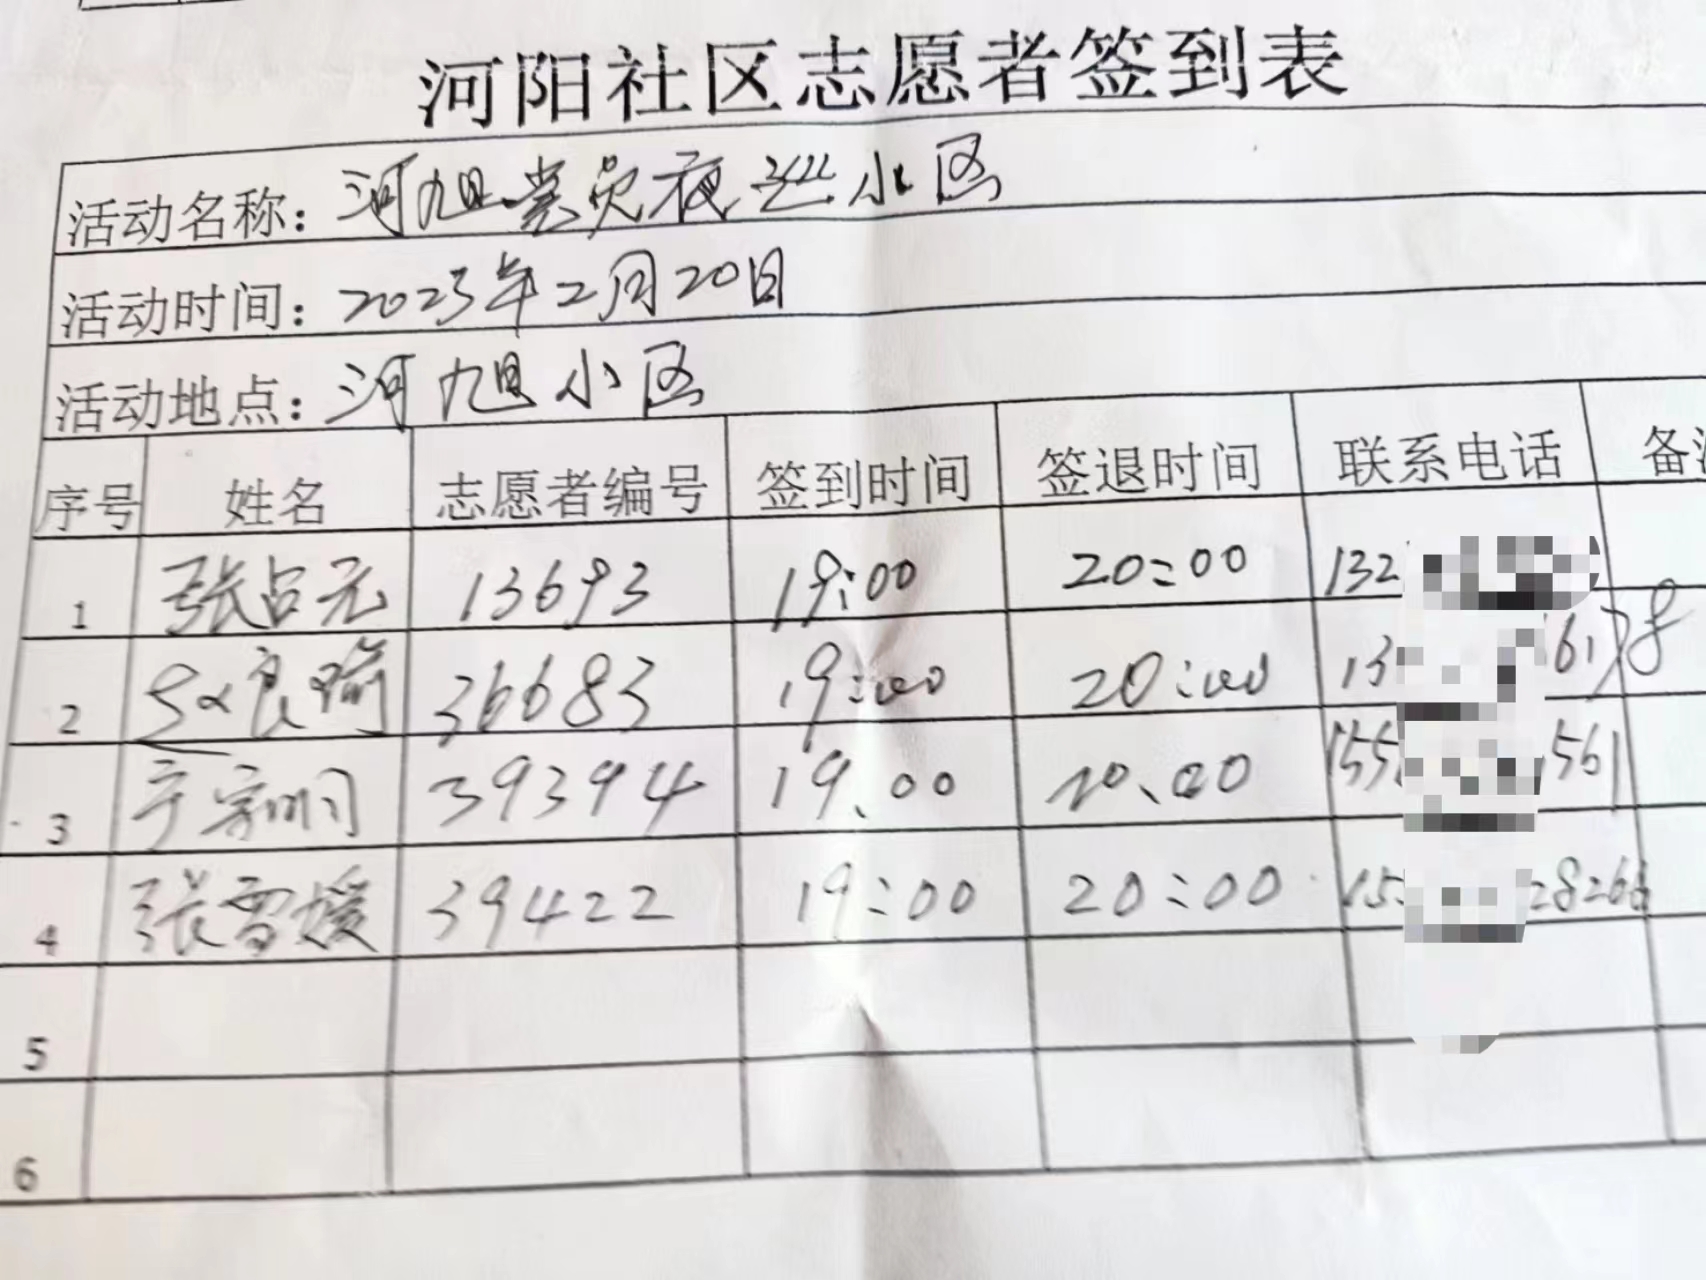 河阳社区志愿者签到表
活动名称：河旭党员夜巡小区
活动时间：2023年2月20日
活动地点：河旭小区
序号 姓名 志愿者编号 签到时间 签退时间 联系电话 备
1 张占元 13693 19:00 20:00 132
2 良瑜 36683 19:00 20:00 13 6178
3 39394 19.00 20.00 155 561
4 张雪媛 39422 19:00 20:00 155 28266
5
6